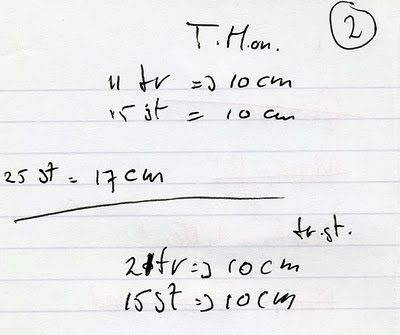 2
T.Hon.
11 tr => 10 cm
15 st = 10 cm
25 st = 17 cm
tr.st.
21 tr => 10 cm
15 st => 10 cm